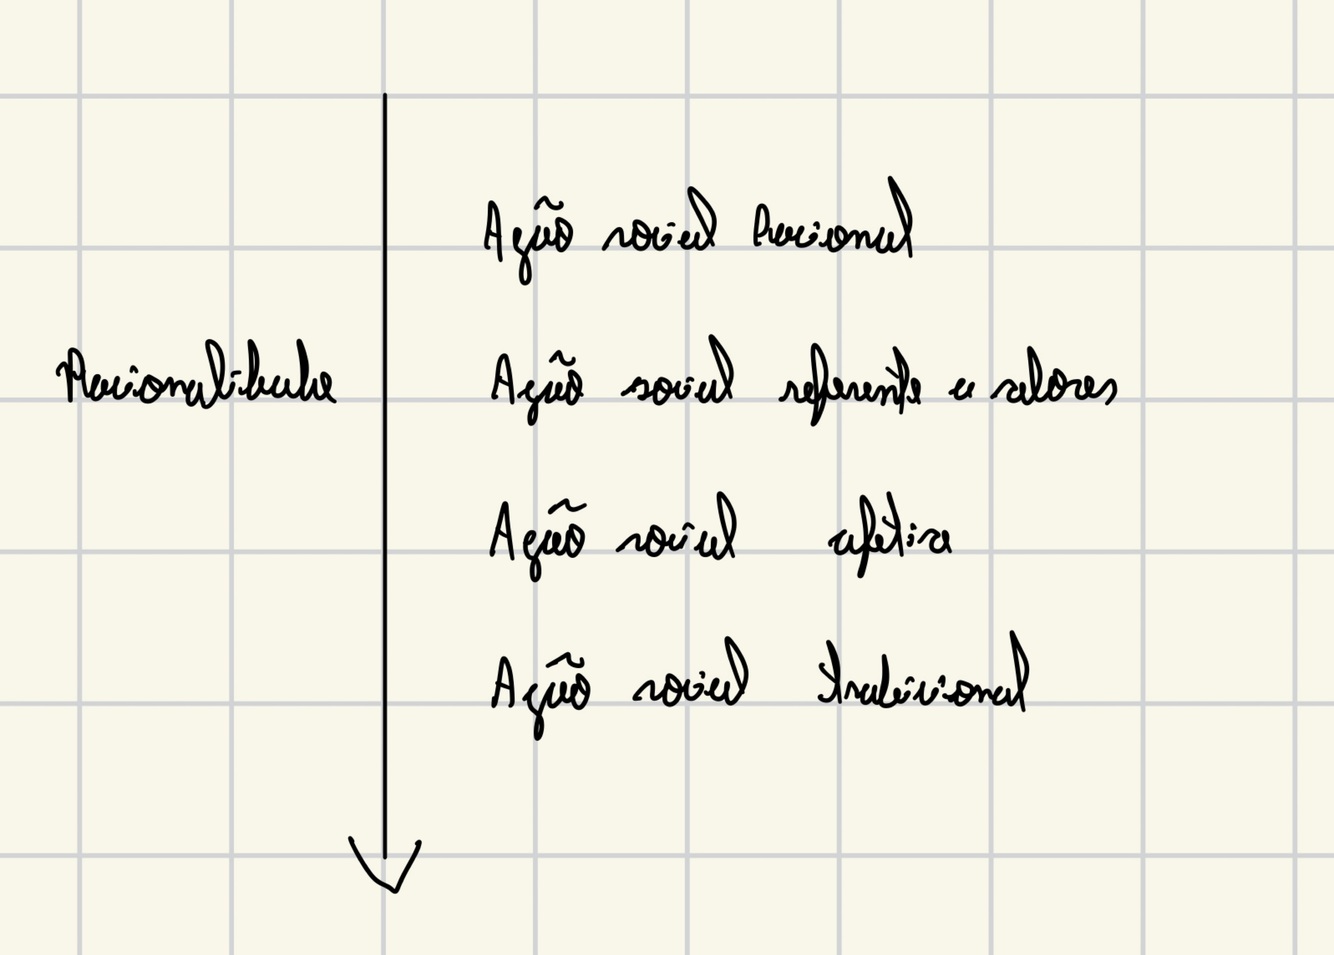 Ação social Racional
Racionalidade
Ação social referente a valores
Ação social afetiva
Ação social tradicional